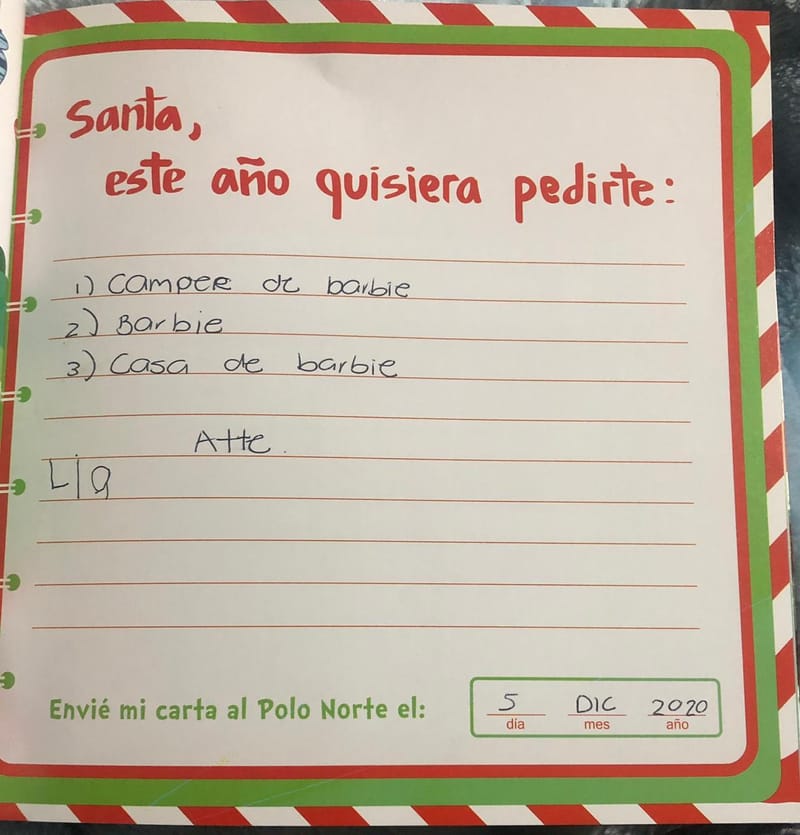 Santa,
este año quisiera pedirte:
1) Camper de barbie
2) Barbie
3) Casa de barbie
Atte.
Lia
Envié mi carta al Polo Norte el:
5 DIC 2020
día mes año